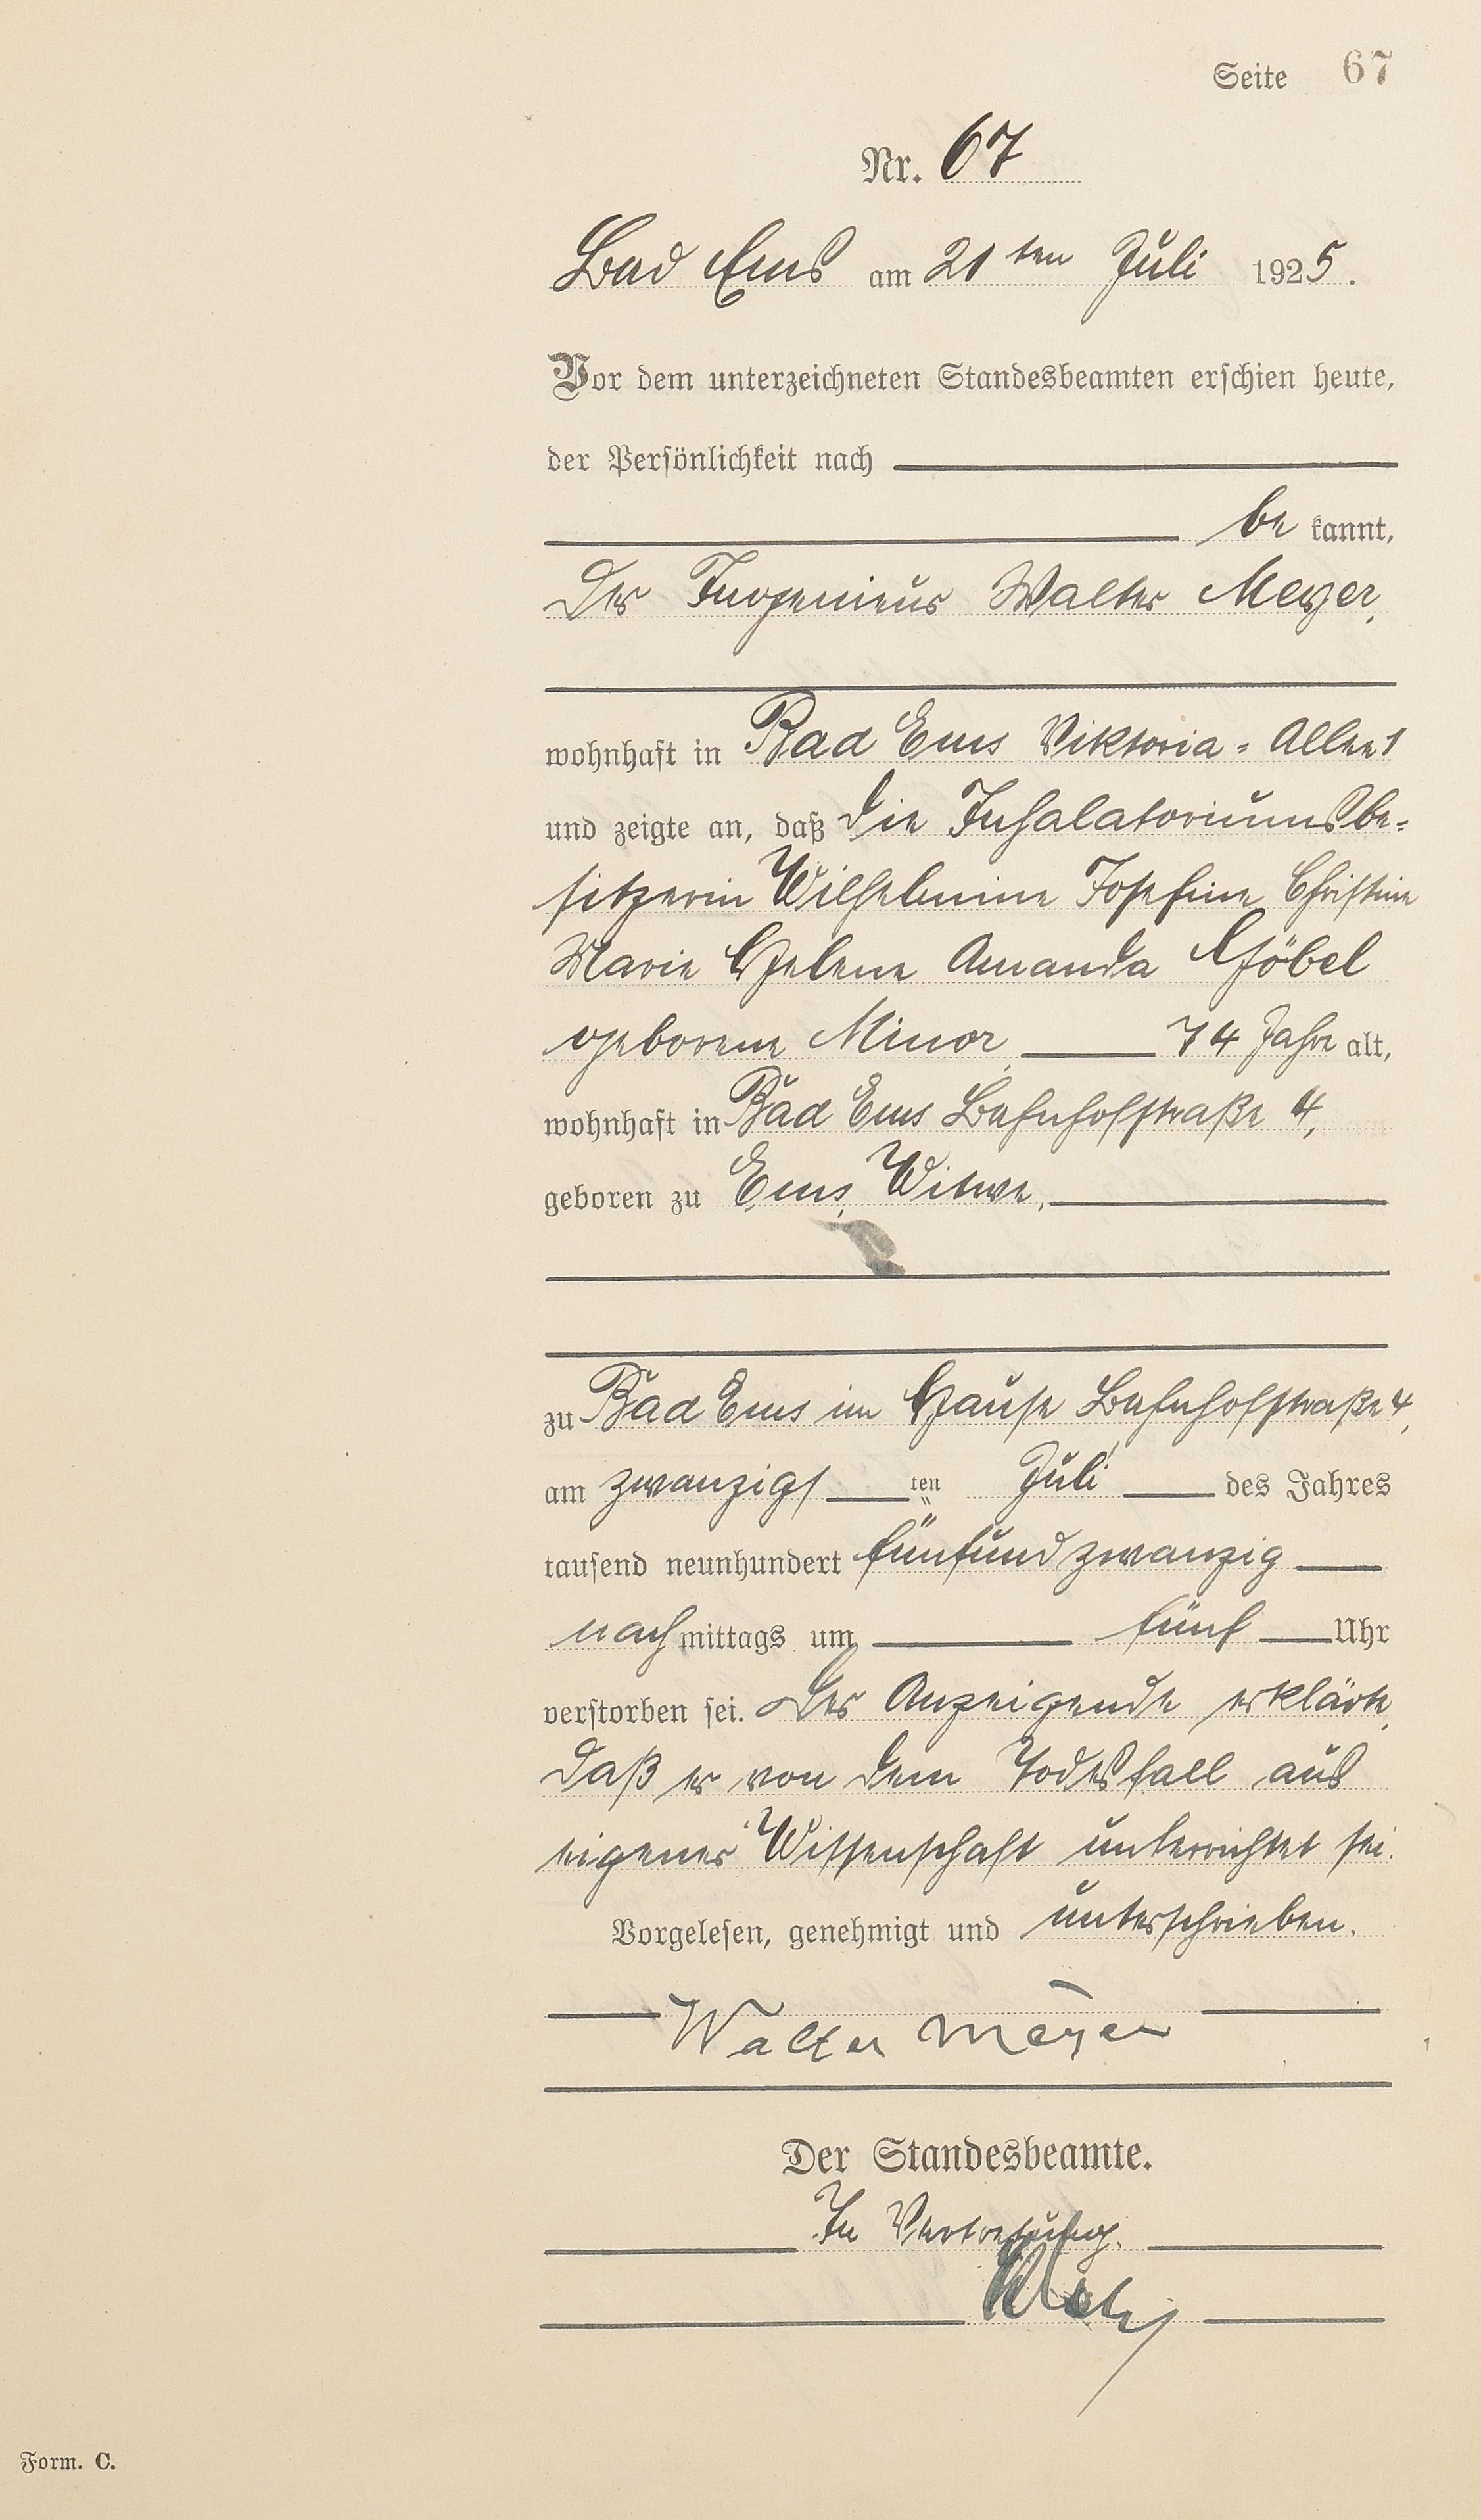 Seite 67
Nr. 67
Bad Ems am 21ten Juli 1925.
Vor dem unterzeichneten Standesbeamten erschien heute,
der Persönlichkeit nach
be kannt,
der Ingenieur Walter Meyer,
wohnhaft in Bad Ems Viktoria-Allee 1
und zeigte an, daß die Inhalatoriumsbe-
sitzerin Wilhelmine Josefine Christine
Marie Helene Amanda Göbel
geborene Minor, 74 Jahre alt,
wohnhaft in Bad Ems Bahnhofstraße 4,
geboren zu Ems, Witwe,
zu Bad Ems im Hause Bahnhofstraße 4,
am zwanzigsten Juli des Jahres
tausend neunhundert fünfundzwanzig
nachmittags um fünf Uhr
verstorben sei. Der Anzeigende erklärte,
daß er von dem Todesfall aus
eigener Wissenschaft unterrichtet sei.
Vorgelesen, genehmigt und unterschrieben.
Walter Meyer
Der Standesbeamte.
In Vertretung.
Form. C.